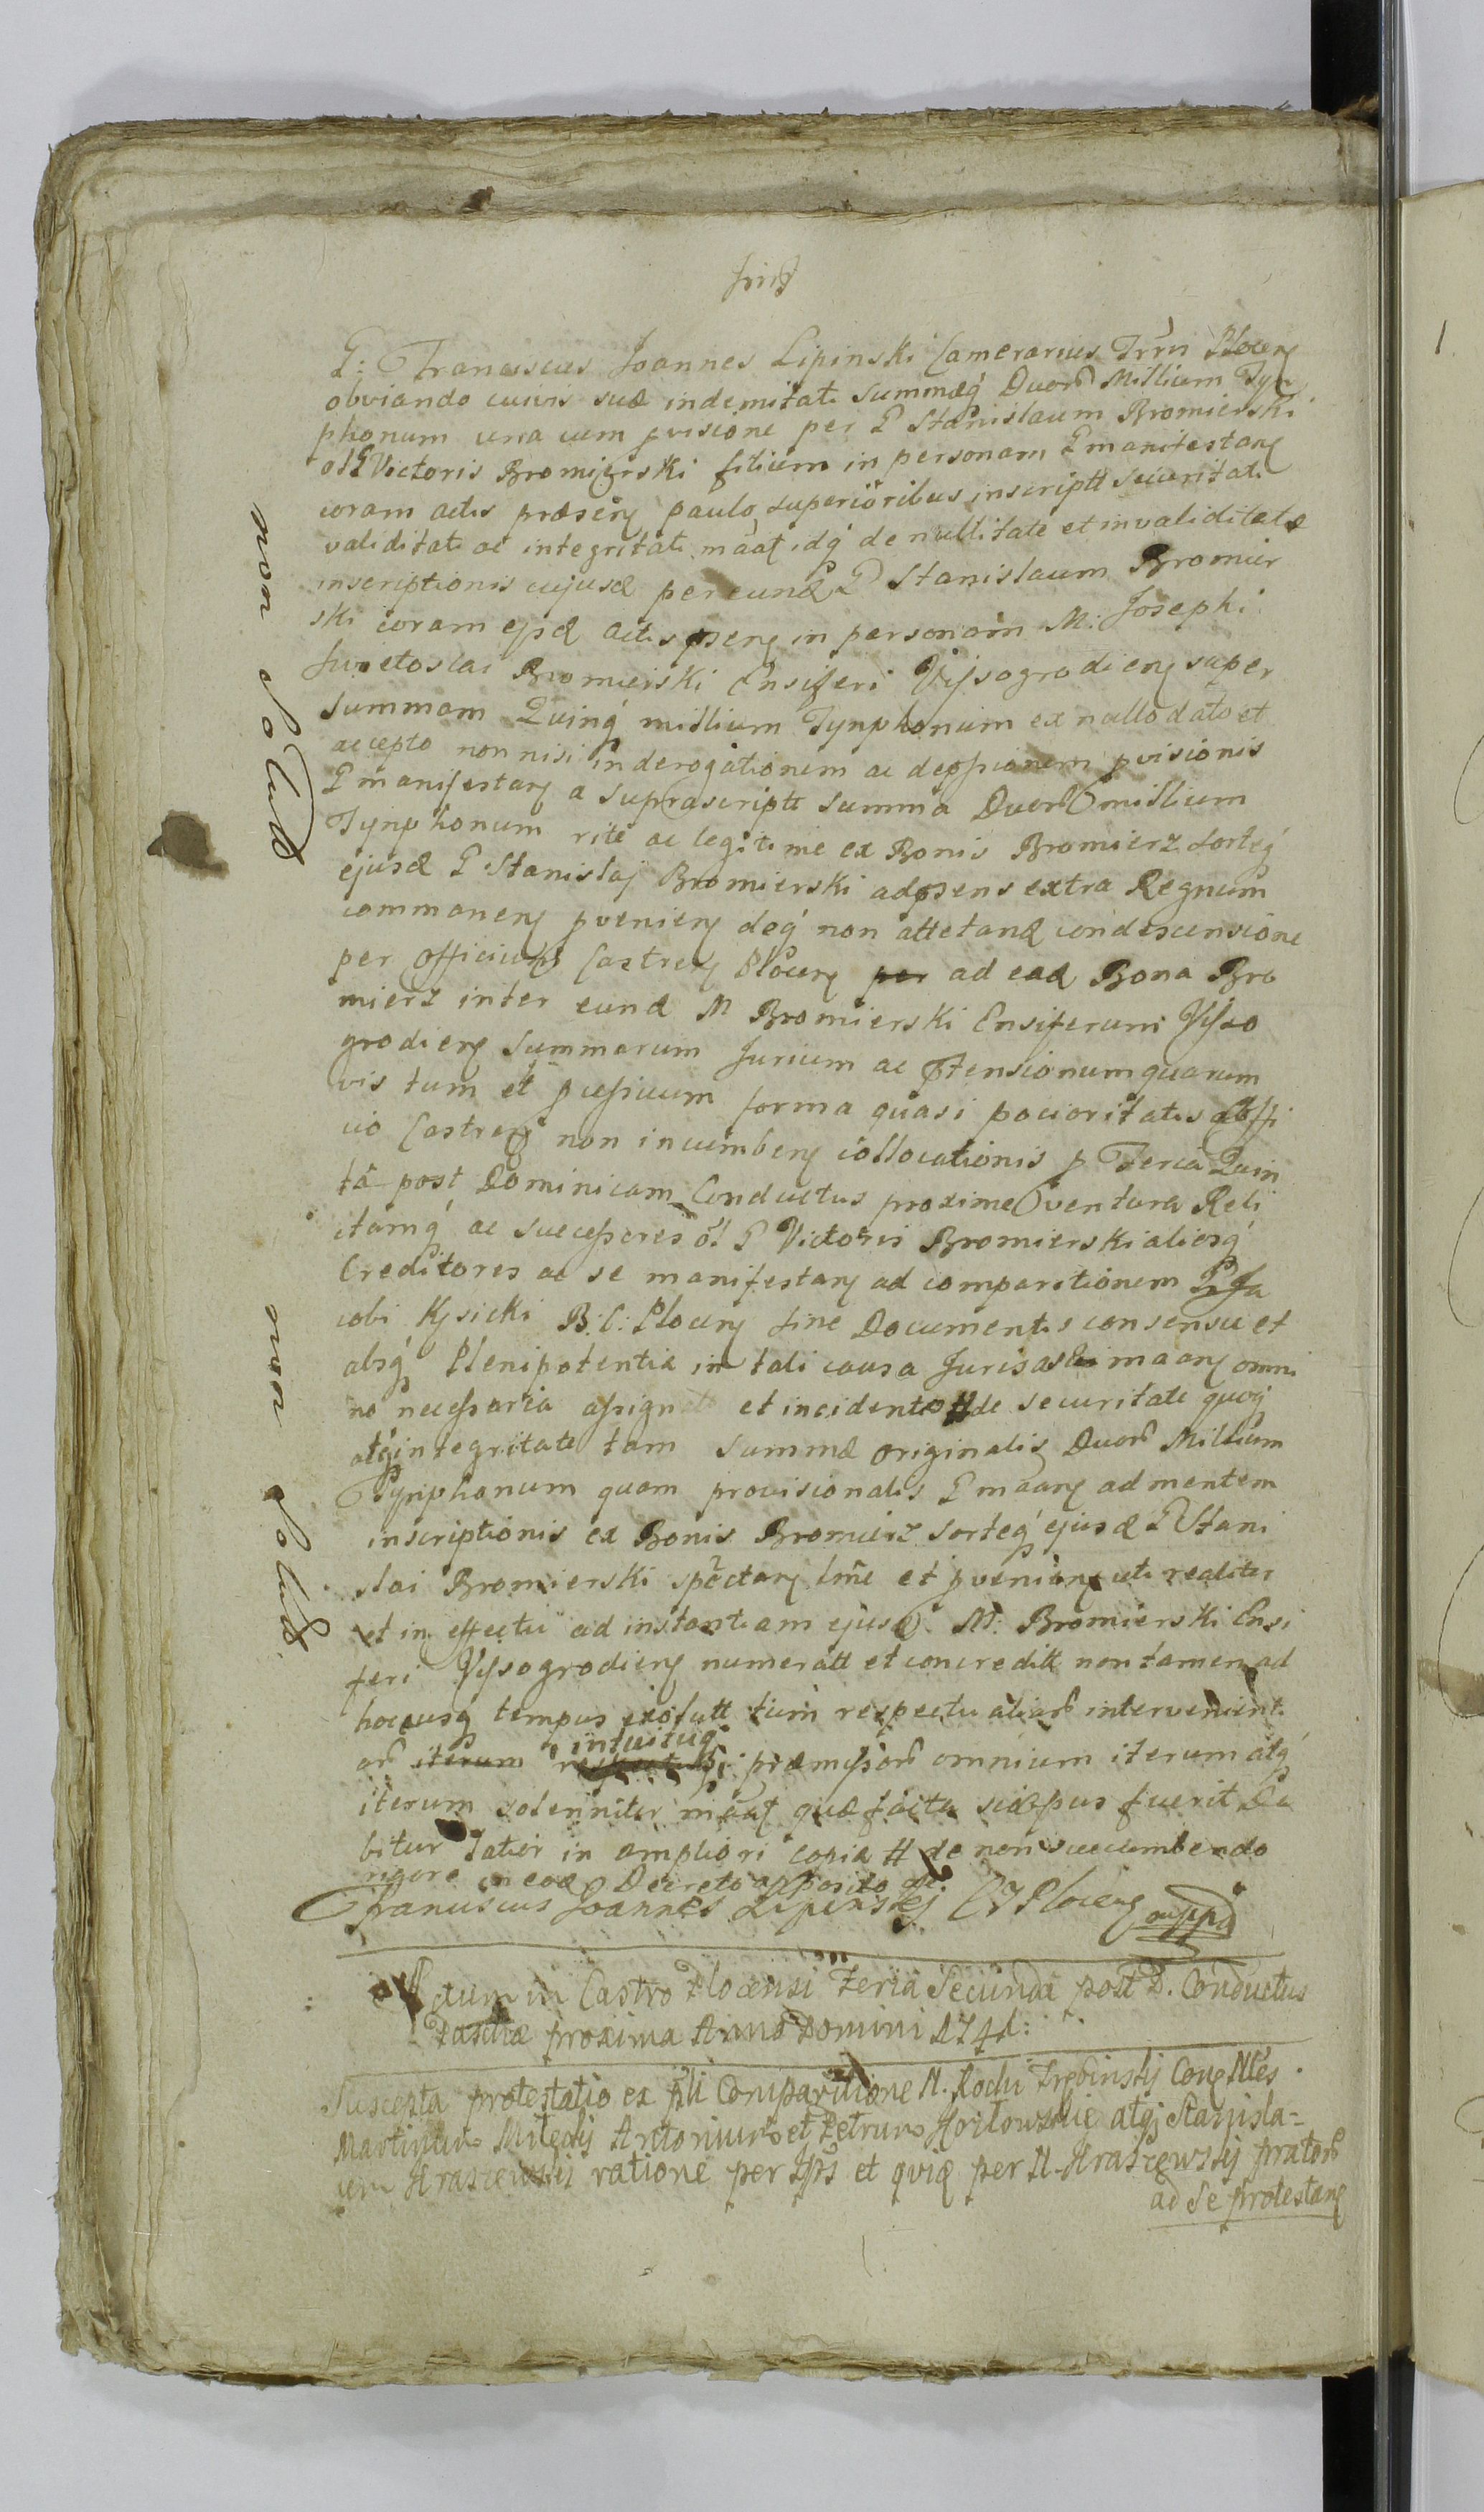 G: Franciscus Joannes Lipinski Camerarius Trrii Plocen
obviando cuivis suæ indemnitati summæq Duor Millium Tym
phonum una cum pvisione per G Stanislaum Bromierski
ol G Victoris Bromierski filium in personam G manifestan
coram actis præsen paulo superioribus inscriptt securitati
validitati ac integritati maat idq de nullitate et invaliditate
inscriptionis cujusd per eund G Stanislaum Bromier
ski coram ejsd actis psen in personam M: Josephi
Swietoslai Bromierski Ensiferi Vissogrodien super
summam Quinq millium Tynphonum ex nullo dato et
accepto non nisi in derogationem ac depssionem pvisionis
G manifestan a suprascriptt summa Duor millium
Tynphonum rite ac legitime ex Bonis Bromierz sorteq
ejusd G Stanislaj Bromierski adpsens extra Regnum
commanen pvenien deq non attetand condescensione
per Officium Castren Plocen per ad ead Bona Bro
mierz inter eund M Bromierski Ensiferum Visso
grodien summarum Jurium ac Ptensionum quarum
vis tum et forma quasi pocioritatis ab Offi
cio Castren non incumben collocationis p Feria Quin
ta post Dominicam Conductus proxime ventura
ac successores ol G Victoris Bromierski aliosq
Creditores ac se manifestan ad comparitionem G Ja
cobi Kysicki B: C: Plocen sine Documentis consensu et
absq Plenipotentia in tali causa Juris maan omni
no necessaria assign et incidenter de securitate quoq
atq integritate tam summæ originalis Duor Millium
Tynphonum quam provisionalis G maan ad mentem
inscriptionis ex Bonis Bromierz sorteq ejusd G Stani
slai Bromierski spectan lme et pvenien uti realiter
et in effectu ad instantiam ejusd M: Bromierski Ensi
feri Vissogrodien numeratt et concreditt non tamen ad
hocusq tempus exolutt tum respectu aliar intervenient
or iterum intuituq præmissor omnium iterum atq
iterum solenniter maat quæ facta sæpius fuerit Da
bitur latior in ampliori copia # de non succumbendo
rigore in ead Decreto apposito
Franciscus Joannes Lipinskj C T Plocens mppa
Actum in Castro Plocensi Feria Secunda post D. Conductus
Paschæ proxima Anno Domini 1741:
Suscepta protestatio ex pli Comparitione N. Rochi
Martinum Antonium et Petrum atq Stanisla=
um Kraszewskij ratione per Ips et qviq per N. Kraszewskij prator
ad se protestan
non solut
non solut